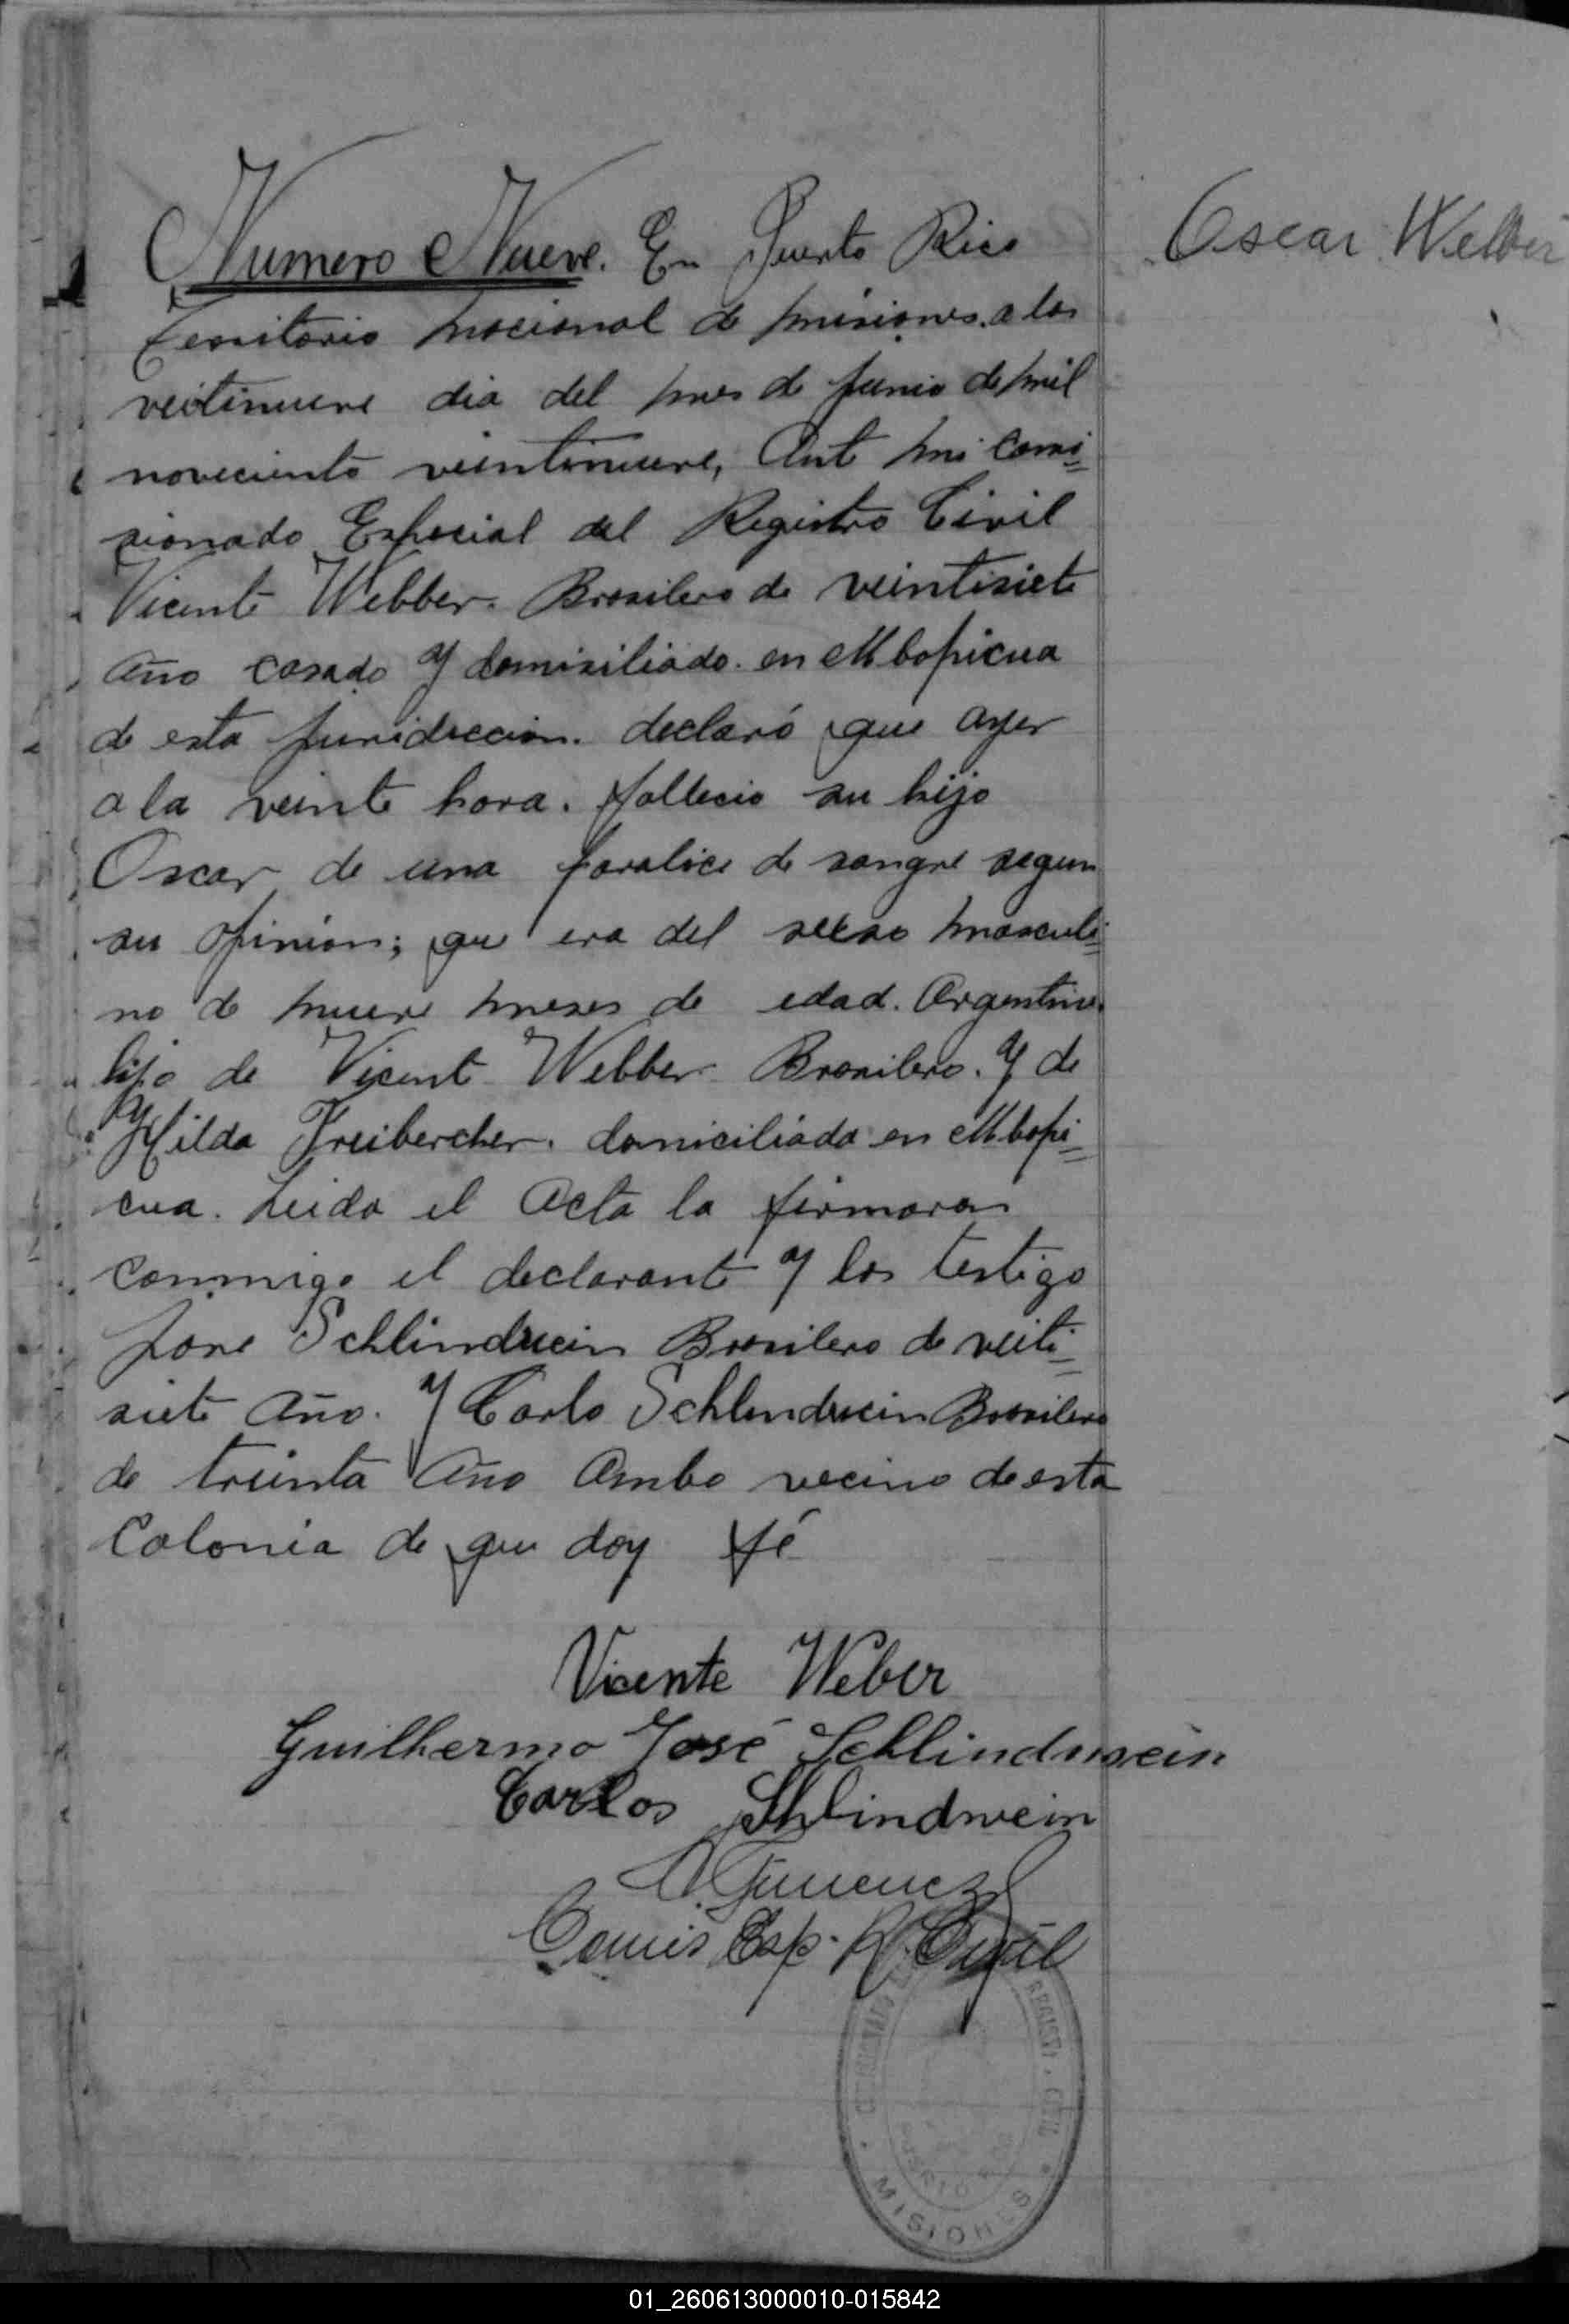 Numero Nueve. En Puerto Rico
Oscar Webber
Territorio nacional de misiones. a los
veitinueve dia del mes de Junio de mil
noveciento veintinueve, Ante mi Comi=
sionado Especial del Registro Civil
Vicente Webber. Brasilero de veintisiete
Año casado y domisiliado. en Mbopicua
de esta juridiccion. declaró que ayer
a la veinte hora. fallecio su hijo
Oscar de una paralice de sangre segun
su opinion; que era del sexso masculi=
no de nueve meses de edad. Argentino.
hijo de Vicente Webber Brasilero. y de
Hilda Freibercher. domiciliada en Mbopi=
cua. Leida el Acta la firmaron
conmigo el declarante y los testigo
Jose Schlindwein Brasilero de veiti=
siete Año. y Carlo Schlindwein Brasilero
de treinta Año Ambo vecino de esta
Colonia de que doy fé
Vicente Weber
Guilhermo José Schlindwein
Carlos Shlindwein
Gimenez
Comis Esp. R. Civil
MISIONES
01_260613000010-015842